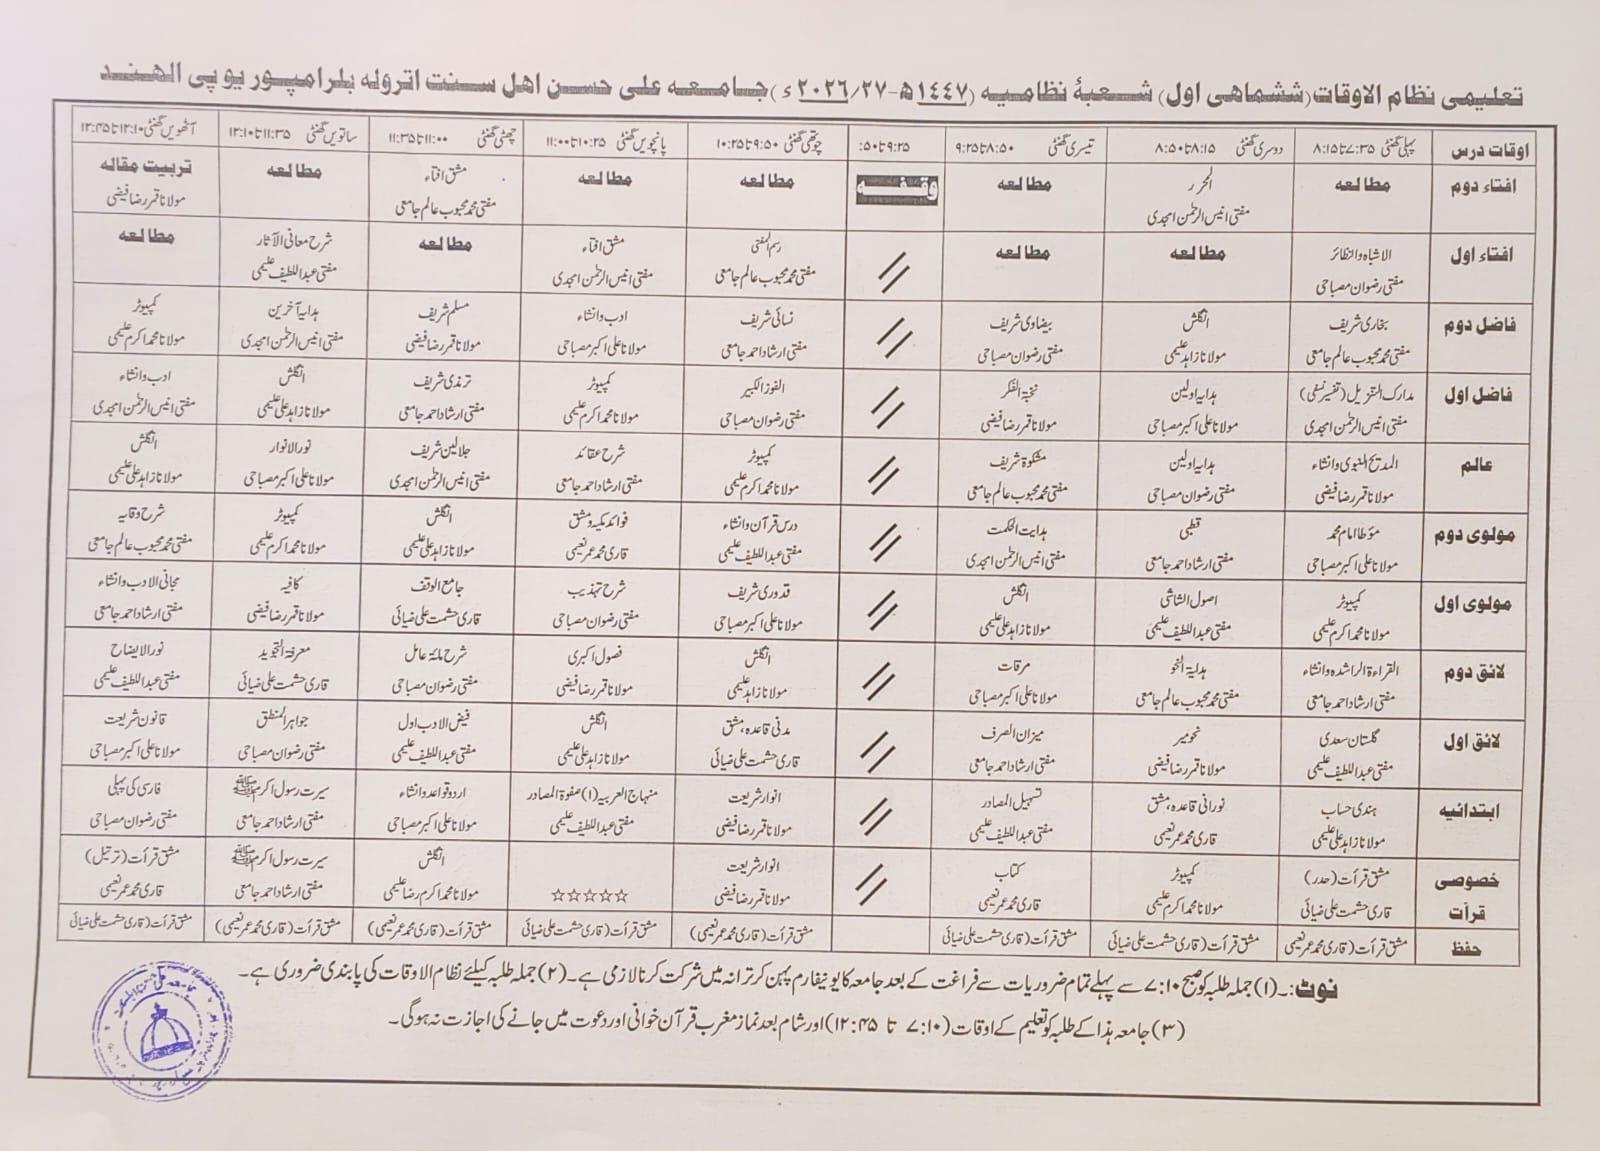 تعلیمی نظام الاوقات (ششماہی اول) شعبۂ نظامیہ (۱۴۴۷ھ-۲۷/۲۰۲۶ء) جامعہ علی حسن اہل سنت اترولہ بلرامپور یوپی الہند
اوقات درس پہلی گھنٹی ۷:۳۵ تا ۸:۱۵ دوسری گھنٹی ۸:۱۵ تا ۸:۵۰ تیسری گھنٹی ۸:۵۰ تا ۹:۲۵ ۹:۲۵ تا ۵۰: چوتھی گھنٹی ۹:۵۰ تا ۱۰:۲۵ پانچویں گھنٹی ۱۰:۲۵ تا ۱۱:۰۰ چھٹی گھنٹی ۱۱:۰۰ تا ۱۱:۳۵ ساتویں گھنٹی ۱۱:۳۵ تا ۱۲:۱۰ آٹھویں گھنٹی ۱۲:۱۰ تا ۱۲:۴۵
افتاء دوم مطالعہ الحرر مطالعہ وقفہ مطالعہ مطالعہ مشق افتاء مطالعہ تربیت مقالہ
مفتی انیس الرحمٰن امجدی مفتی محمد محبوب عالم جامعی مولانا قمر رضا فیضی
افتاء اول الاشباہ والنظائر مطالعہ مطالعہ // رسم المفتی مشق افتاء مطالعہ شرح معانی الآثار مطالعہ
مفتی رضوان مصباحی مفتی محمد محبوب عالم جامعی مفتی انیس الرحمٰن امجدی مفتی عبد اللطیف علیمی
فاضل دوم بخاری شریف انگلش بیضاوی شریف // نسائی شریف ادب وانشاء مسلم شریف ہدایہ آخرین کمپیوٹر
مفتی محمد محبوب عالم جامعی مولانا زاہد علیمی مفتی رضوان مصباحی مفتی ارشاد احمد جامعی مولانا علی اکبر مصباحی مولانا قمر رضا فیضی مفتی انیس الرحمٰن امجدی مولانا محمد اکرم علیمی
فاضل اول مدارک التنزیل (تفسیر نسفی) ہدایہ اولین نخبۃ الفکر // الفوز الکبیر کمپیوٹر ترمذی شریف انگلش ادب وانشاء
مفتی انیس الرحمٰن امجدی مولانا علی اکبر مصباحی مولانا قمر رضا فیضی مفتی رضوان مصباحی مولانا محمد اکرم علیمی مفتی ارشاد احمد جامعی مولانا زاہد علی علیمی مفتی انیس الرحمٰن امجدی
عالم المدیح النبوی وانشاء ہدایہ اولین مشکوٰۃ شریف // کمپیوٹر شرح عقائد جلالین شریف نور الانوار انگلش
مولانا قمر رضا فیضی مفتی رضوان مصباحی مفتی محمد محبوب عالم جامعی مولانا محمد اکرم علیمی مفتی ارشاد احمد جامعی مفتی انیس الرحمٰن امجدی مولانا علی اکبر مصباحی مولانا زاہد علی علیمی
مولوی دوم مؤطا امام محمد قطبی ہدایت الحکمت // درس قرآن وانشاء فوائد مکیہ ومشق انگلش کمپیوٹر شرح وقایہ
مولانا علی اکبر مصباحی مفتی ارشاد احمد جامعی مفتی انیس الرحمٰن امجدی مفتی عبد اللطیف علیمی قاری محمد عمر نعیمی مولانا زاہد علی علیمی مولانا محمد اکرم علیمی مفتی محمد محبوب عالم جامعی
مولوی اول کمپیوٹر اصول الشاشی انگلش // قدوری شریف شرح تہذیب جامع الوقف کافیہ مجانی الادب وانشاء
مولانا محمد اکرم علیمی مفتی عبد اللطیف علیمی مولانا زاہد علی علیمی مولانا علی اکبر مصباحی مفتی رضوان مصباحی قاری حشمت علی ضیائی مولانا قمر رضا فیضی مفتی ارشاد احمد جامعی
لائق دوم القراءۃ الراشدہ وانشاء ہدایۃ النحو مرقات // انگلش فصول اکبری شرح مائۃ عامل معرفۃ التجوید نور الایضاح
مفتی ارشاد احمد جامعی مفتی محمد محبوب عالم جامعی مولانا علی اکبر مصباحی مولانا زاہد علیمی مولانا قمر رضا فیضی مفتی رضوان مصباحی قاری حشمت علی ضیائی مفتی عبد اللطیف علیمی
لائق اول گلستان سعدی نحو میر میزان الصرف // مدنی قاعدہ، مشق انگلش فیض الادب اول جواہر المنطق قانون شریعت
مفتی عبد اللطیف علیمی مولانا قمر رضا فیضی مفتی ارشاد احمد جامعی قاری حشمت علی ضیائی مولانا زاہد علی علیمی مفتی عبد اللطیف علیمی مفتی رضوان مصباحی مولانا علی اکبر مصباحی
ابتدائیہ ہندی حساب نورانی قاعدہ، مشق تسہیل المصادر // انوار شریعت منہاج العربیہ (۱) صفوۃ المصادر اردو قواعد وانشاء سیرت رسول اکرم ﷺ فارسی کی پہلی
مولانا زاہد علی علیمی قاری محمد عمر نعیمی مفتی عبد اللطیف علیمی مولانا قمر رضا فیضی مفتی عبد اللطیف علیمی مولانا علی اکبر مصباحی مفتی ارشاد احمد جامعی مفتی رضوان مصباحی
خصوصی مشق قرأت (حدر) کمپیوٹر کتاب // انوار شریعت ☆☆☆☆☆ انگلش سیرت رسول اکرم ﷺ مشق قرأت (ترتیل)
قرأت قاری حشمت علی ضیائی مولانا محمد اکرم علیمی قاری محمد عمر نعیمی مولانا قمر رضا فیضی مولانا محمد اکرم رضا علیمی مفتی ارشاد احمد جامعی قاری محمد عمر نعیمی
حفظ مشق قرأت (قاری محمد عمر نعیمی) مشق قرأت (قاری حشمت علی ضیائی) مشق قرأت (قاری حشمت علی ضیائی) مشق قرأت (قاری محمد عمر نعیمی) مشق قرأت (قاری حشمت علی ضیائی) مشق قرأت (قاری محمد عمر نعیمی) مشق قرأت (قاری محمد عمر نعیمی) مشق قرأت (قاری حشمت علی ضیائی)
نوٹ:۔ (۱) جملہ طلبہ کو صبح ۷:۱۰ سے پہلے تمام ضروریات سے فراغت کے بعد جامعہ کا یونیفارم پہن کر ترانہ میں شرکت کرنا لازمی ہے۔ (۲) جملہ طلبہ کیلئے نظام الاوقات کی پابندی ضروری ہے۔
(۳) جامعہ ہذا کے طلبہ کو تعلیم کے اوقات (۷:۱۰ تا ۱۲:۴۵) اور شام بعد نماز مغرب قرآن خوانی اور دعوت میں جانے کی اجازت نہ ہوگی۔